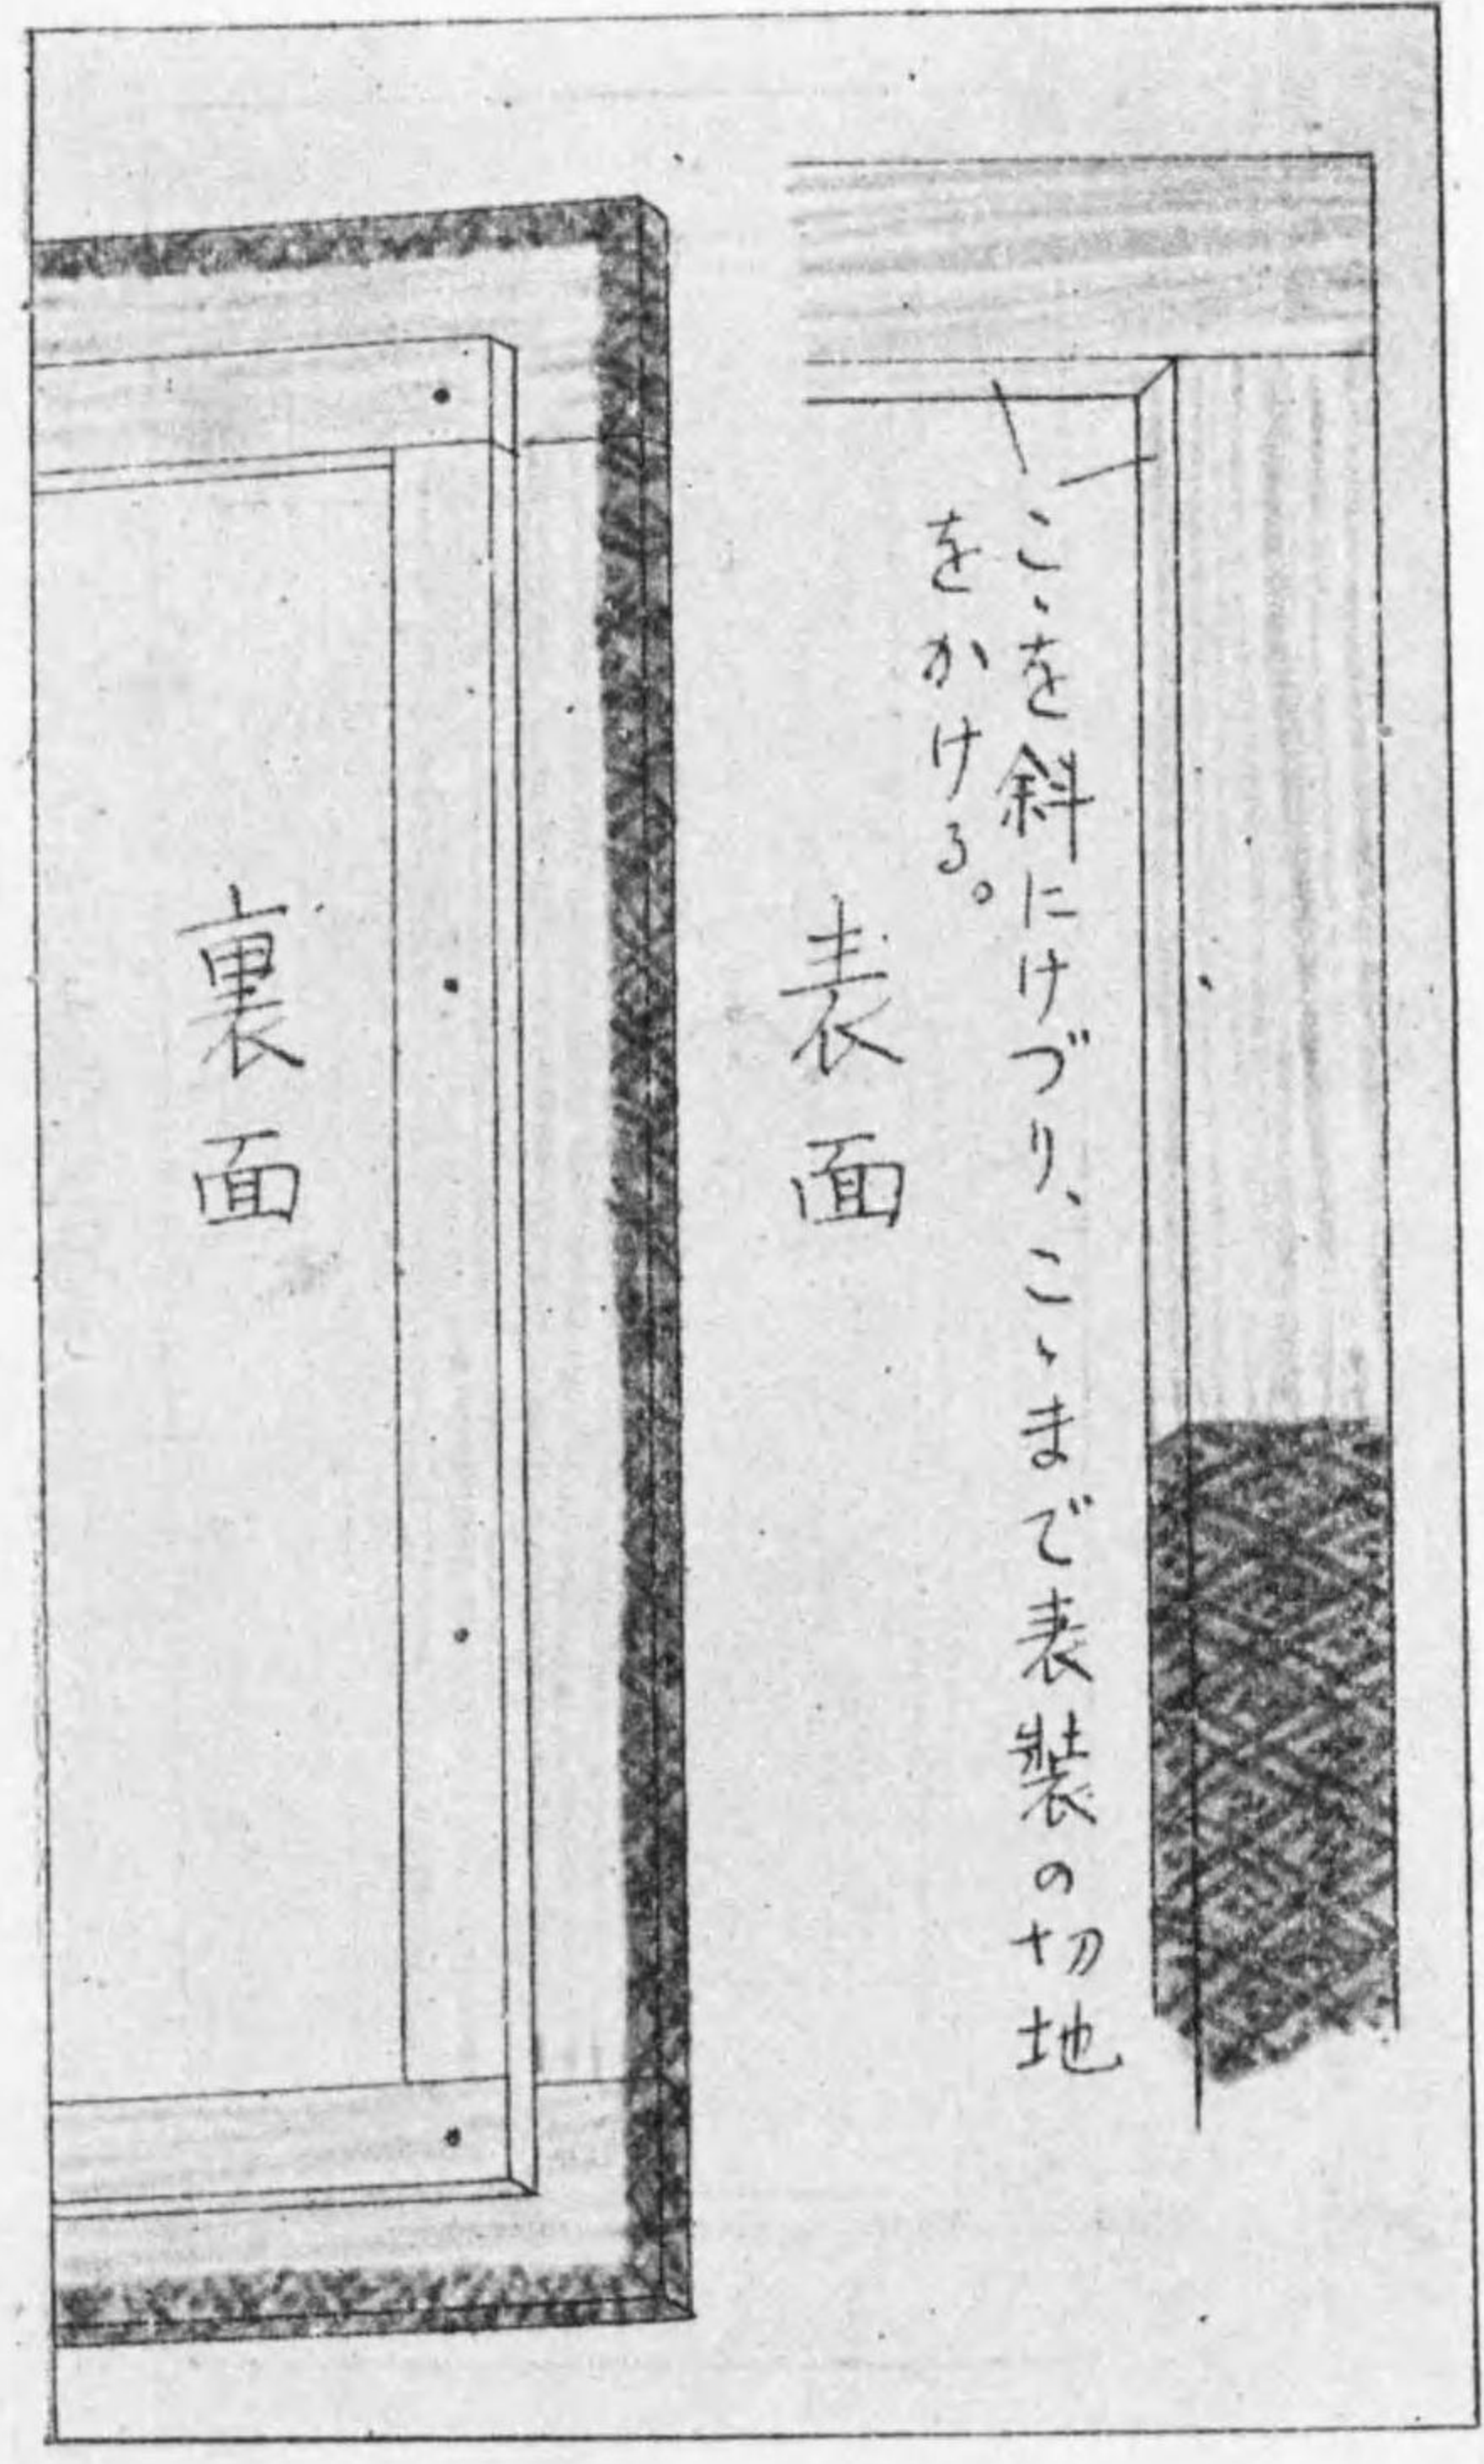 こゝを斜にけづり、こゝまで表装の切地
をかける。
表面
裏面